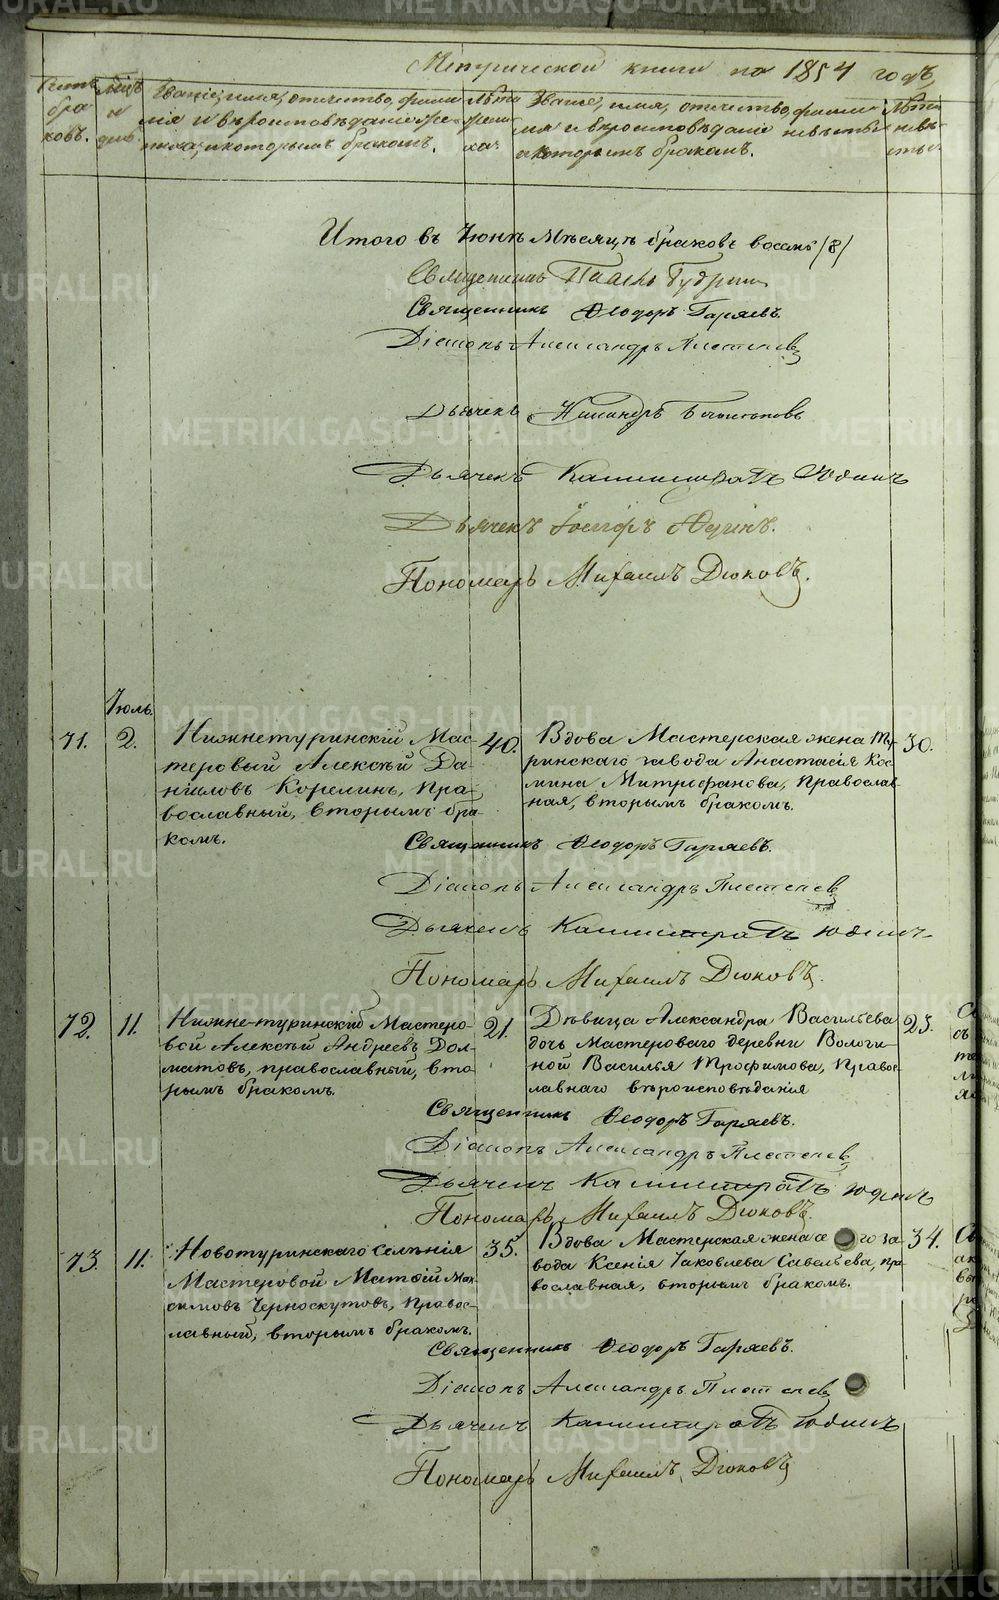 Метрической книги на 1854 годъ,
Счетъ браковъ.
Мѣцъ и дни.
Званіе, имя, отчество, фамилія и вѣроисповѣданіе жениха, и которымъ бракомъ.
Лѣта жениха.
Званіе, имя, отчество, фамилія и вѣроисповѣданіе невѣсты и которымъ бракомъ.
Лѣта невѣсты.
Итого въ Іюнѣ Мѣсяцѣ браковъ восемь (8)
Священникъ Павелъ Гудринъ
Священникъ Ѳеодоръ Гаряевъ.
Діаконъ Александръ Плетеневъ
Дьячекъ Никандръ
Дьячекъ Каллистратъ Юдинъ
Дьячекъ Іосифъ Юдинъ.
Пономарь Михаилъ Дюковъ.
Іюль.
71. 2. Нижнетуринскій Мас-
теровый Алексѣй Да-
ниловъ Корелинъ, Пра-
вославный, вторымъ бра-
комъ.
40.
Вдова Мастерская жена Ту-
ринскаго завода Анастасія Кос-
мина Митрофанова, Православ-
ная, вторымъ бракомъ.
30.
Священникъ Ѳеодоръ Гаряевъ.
Діаконъ Александръ Плетеневъ
Дьячекъ Каллистратъ Юдинъ
Пономарь Михаилъ Дюковъ.
72. 11. Нижне-туринскій Мастеро-
вой Алексѣй Андреевъ Дол-
матовъ, православный, вто-
рымъ бракомъ.
21.
Дѣвица Александра Васильева
дочь Мастероваго деревни Вологи-
ной Василья Трофимова, Правос-
лавнаго вѣроисповѣданія
23.
Священникъ Ѳеодоръ Гаряевъ.
Діаконъ Александръ Плетеневъ
Дьячекъ Каллистратъ Юдинъ
Пономарь Михаилъ Дюковъ.
73. 11. Новотуринскаго Селѣнія
Мастеровой Матѳій Мак-
симовъ Черноскутовъ, Правос-
лавный, вторымъ бракомъ.
35.
Вдова Мастерская жена се го за
вода Ксенія Іаковлева Савельева, пра-
вославная, вторымъ бракомъ.
34.
Священникъ Ѳеодоръ Гаряевъ.
Діаконъ Александръ Плетеневъ
Дьячекъ Каллистратъ Юдинъ
Пономарь Михаилъ Дюковъ
METRIKI.GASO-URAL.RU